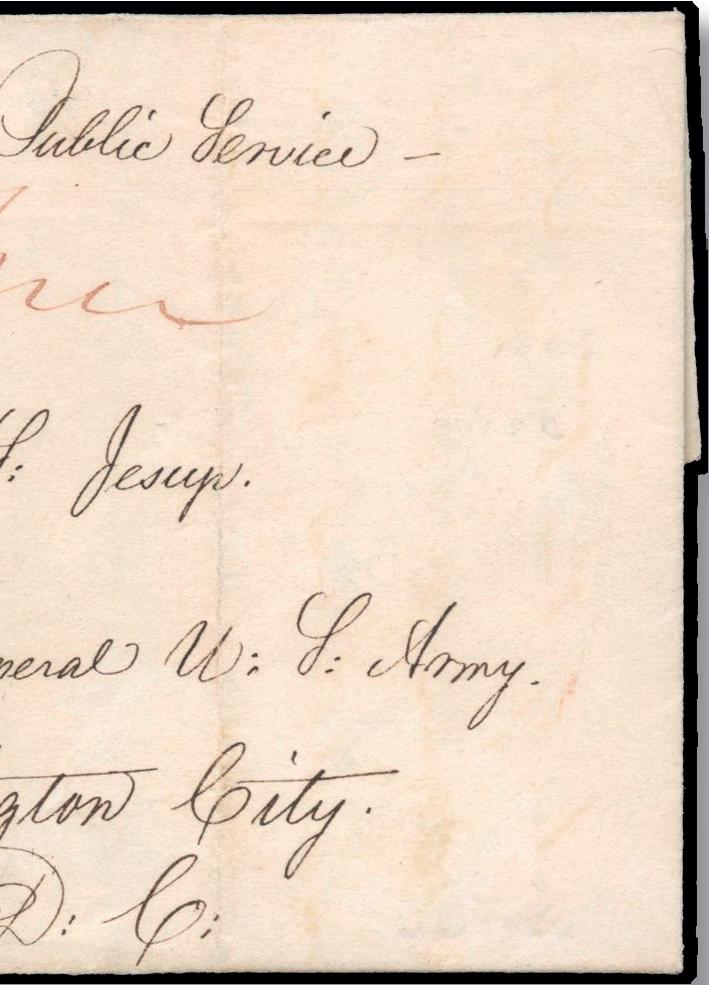 Public Service —
S: Jesup.
neral U: S: Army.
gton City.
D: C: